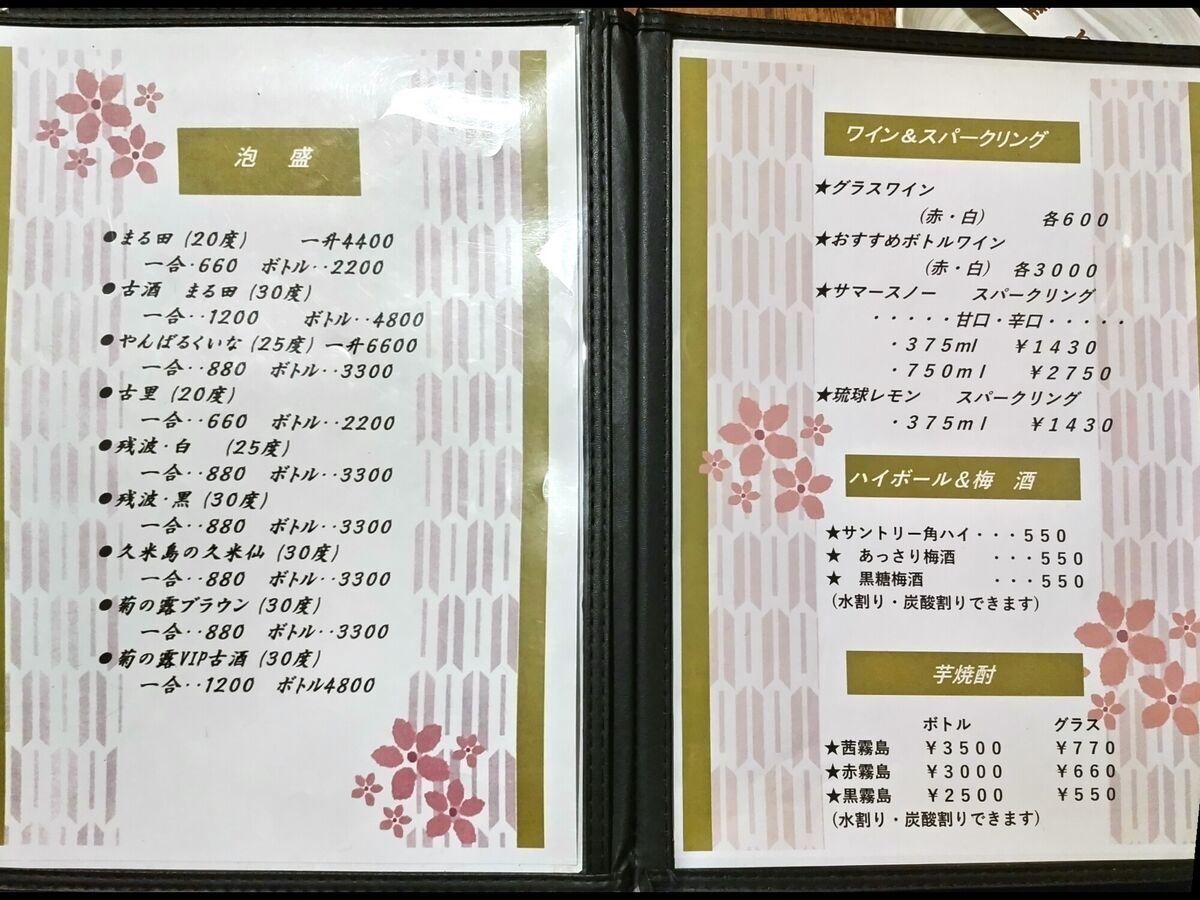 泡　盛
●まる田 (20度)　　一升4400
一合・660　ボトル・・2200
●古酒　まる田 (30度)
一合・・1200　　ボトル・・4800
●やんばるくいな (25度) 一升6600
一合・・880　ボトル・・3300
●古里 (20度)
一合・・660　ボトル・・2200
●残波・白　(25度)
一合・・880　ボトル・・3300
●残波・黒 (30度)
一合・・880　ボトル・・3300
●久米島の久米仙 (30度)
一合・・880　ボトル・・3300
●菊の露ブラウン (30度)
一合・・880　ボトル・・3300
●菊の露VIP古酒 (30度)
一合・・1200　ボトル4800
ワイン＆スパークリング
★グラスワイン
(赤・白)　　各６００
★おすすめボトルワイン
(赤・白)　各３０００
★サマースノー　スパークリング
・・・・・甘口・辛口・・・・・
・３７５ml　￥１４３０
・７５０ｍｌ　￥２７５０
★琉球レモン　スパークリング
・３７５ｍｌ　￥１４３０
ハイボール＆梅　酒
★サントリー角ハイ・・・５５０
★　あっさり梅酒　・・・５５０
★　黒糖梅酒　・・・５５０
(水割り・炭酸割りできます)
芋焼酎
ボトル　グラス
★茜霧島　￥３５００　￥７７０
★赤霧島　￥３０００　￥６６０
★黒霧島　￥２５００　￥５５０
(水割り・炭酸割りできます)